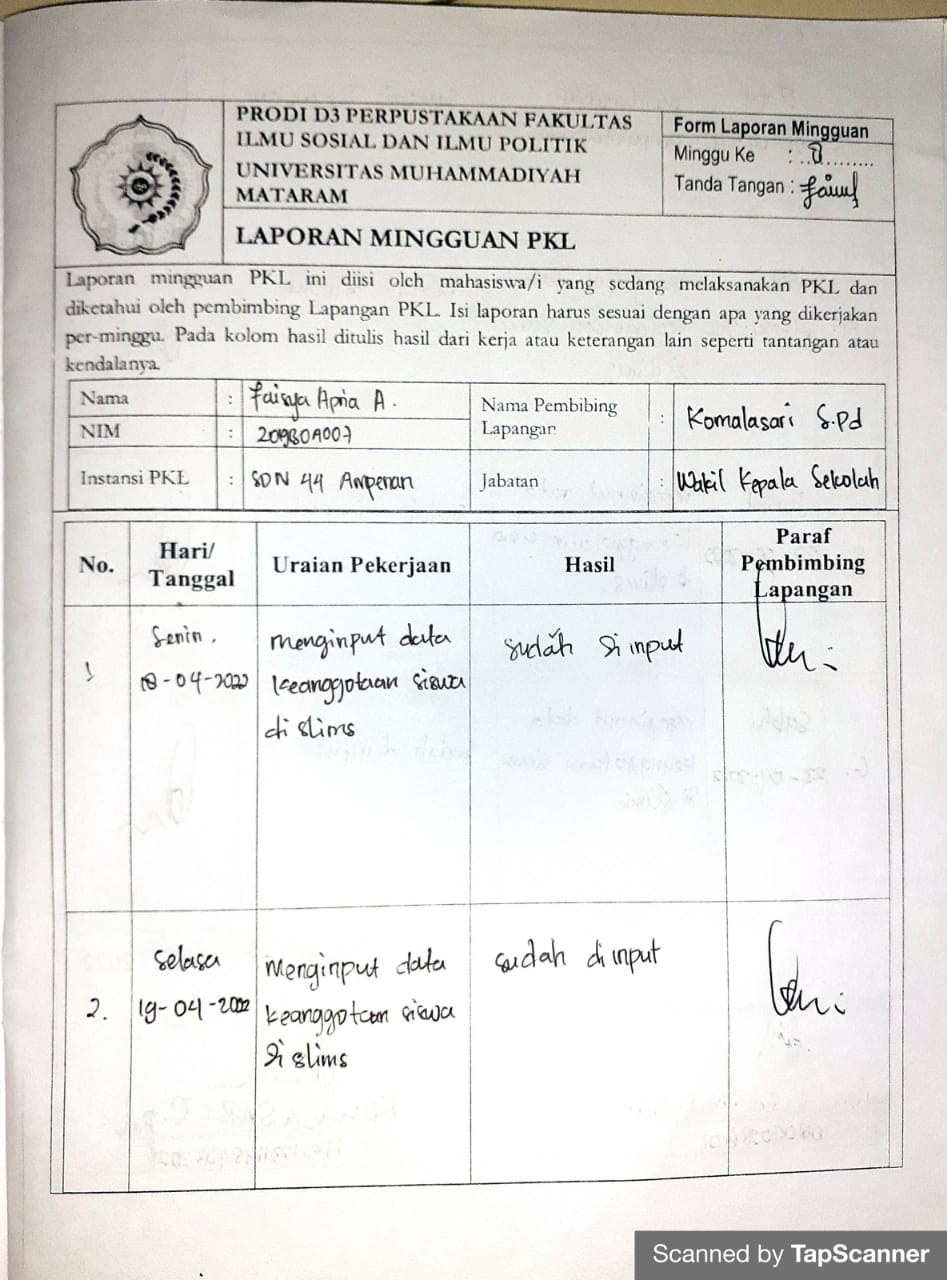 PRODI D3 PERPUSTAKAAN FAKULTAS
ILMU SOSIAL DAN ILMU POLITIK
UNIVERSITAS MUHAMMADIYAH
MATARAM
Form Laporan Mingguan
Minggu Ke :
Tanda Tangan :
LAPORAN MINGGUAN PKL
Laporan mingguan PKL ini diisi oleh mahasiswa/i yang sedang melaksanakan PKL dan
diketahui oleh pembimbing Lapangan PKL. Isi laporan harus sesuai dengan apa yang dikerjakan
per-minggu. Pada kolom hasil ditulis hasil dari kerja atau keterangan lain seperti tantangan atau
kendalanya.
Nama : Faisya Apria A.
NIM :
Instansi PKL : SDN 44 Ampenan
Nama Pembibing
Lapangan : Komalasari S.Pd
Jabatan : Wakil Kepala Sekolah
No.
Hari/
Tanggal
Uraian Pekerjaan
Hasil
Paraf
Pembimbing
Lapangan
1
Senin,
18-04-2022
menginput data
keanggotaan siswa
di slims
sudah di input
2.
Selasa
19-04-2022
menginput data
keanggotaan siswa
di slims
sudah di input
Scanned by TapScanner